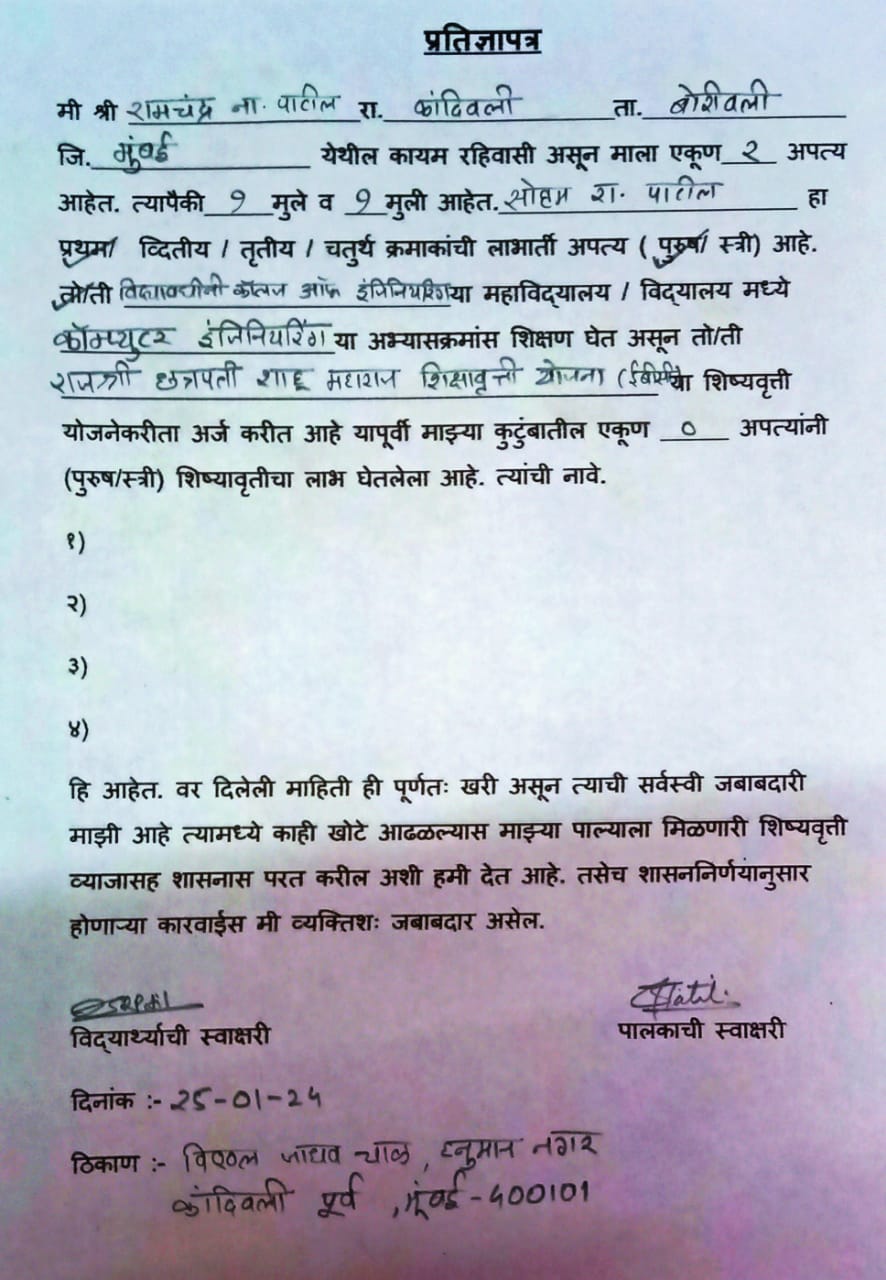 प्रतिज्ञापत्र
मी श्री रामचंद्र ना. पाटील रा. कांदिवली ता. बोरीवली
जि. मुंबई येथील कायम रहिवासी असून माला एकूण २ अपत्य
आहेत. त्यापैकी १ मुले व १ मुली आहेत. सोहम रा. पाटील हा
प्रथम/ व्दितीय / तृतीय / चतुर्थ क्रमाकांची लाभार्ती अपत्य ( पुरुष/ स्त्री) आहे.
तो/ती कॉलेज ऑफ इंजिनियरिंग या महाविद्यालय / विद्यालय मध्ये
कॉम्प्युटर इंजिनियरिंग या अभ्यासक्रमांस शिक्षण घेत असून तो/ती
राजश्री छत्रपती शाहू महाराज शिक्षावृत्ती योजना (ईबीसी) या शिष्यवृत्ती
योजनेकरीता अर्ज करीत आहे यापूर्वी माझ्या कुटुंबातील एकूण ० अपत्यांनी
(पुरुष/स्त्री) शिष्यावृतीचा लाभ घेतलेला आहे. त्यांची नावे.
१)
२)
३)
४)
हि आहेत. वर दिलेली माहिती ही पूर्णतः खरी असून त्याची सर्वस्वी जबाबदारी
माझी आहे त्यामध्ये काही खोटे आढळल्यास माझ्या पाल्याला मिळणारी शिष्यवृत्ती
व्याजासह शासनास परत करील अशी हमी देत आहे. तसेच शासननिर्णयानुसार
होणाऱ्या कारवाईस मी व्यक्तिशः जबाबदार असेल.
Patil.
विद्यार्थ्याची स्वाक्षरी पालकाची स्वाक्षरी
दिनांक :- 25-01-24
ठिकाण :- विठ्ठल जाधव चाळ, हनुमान नगर
कांदिवली पूर्व , मुंबई - 400101